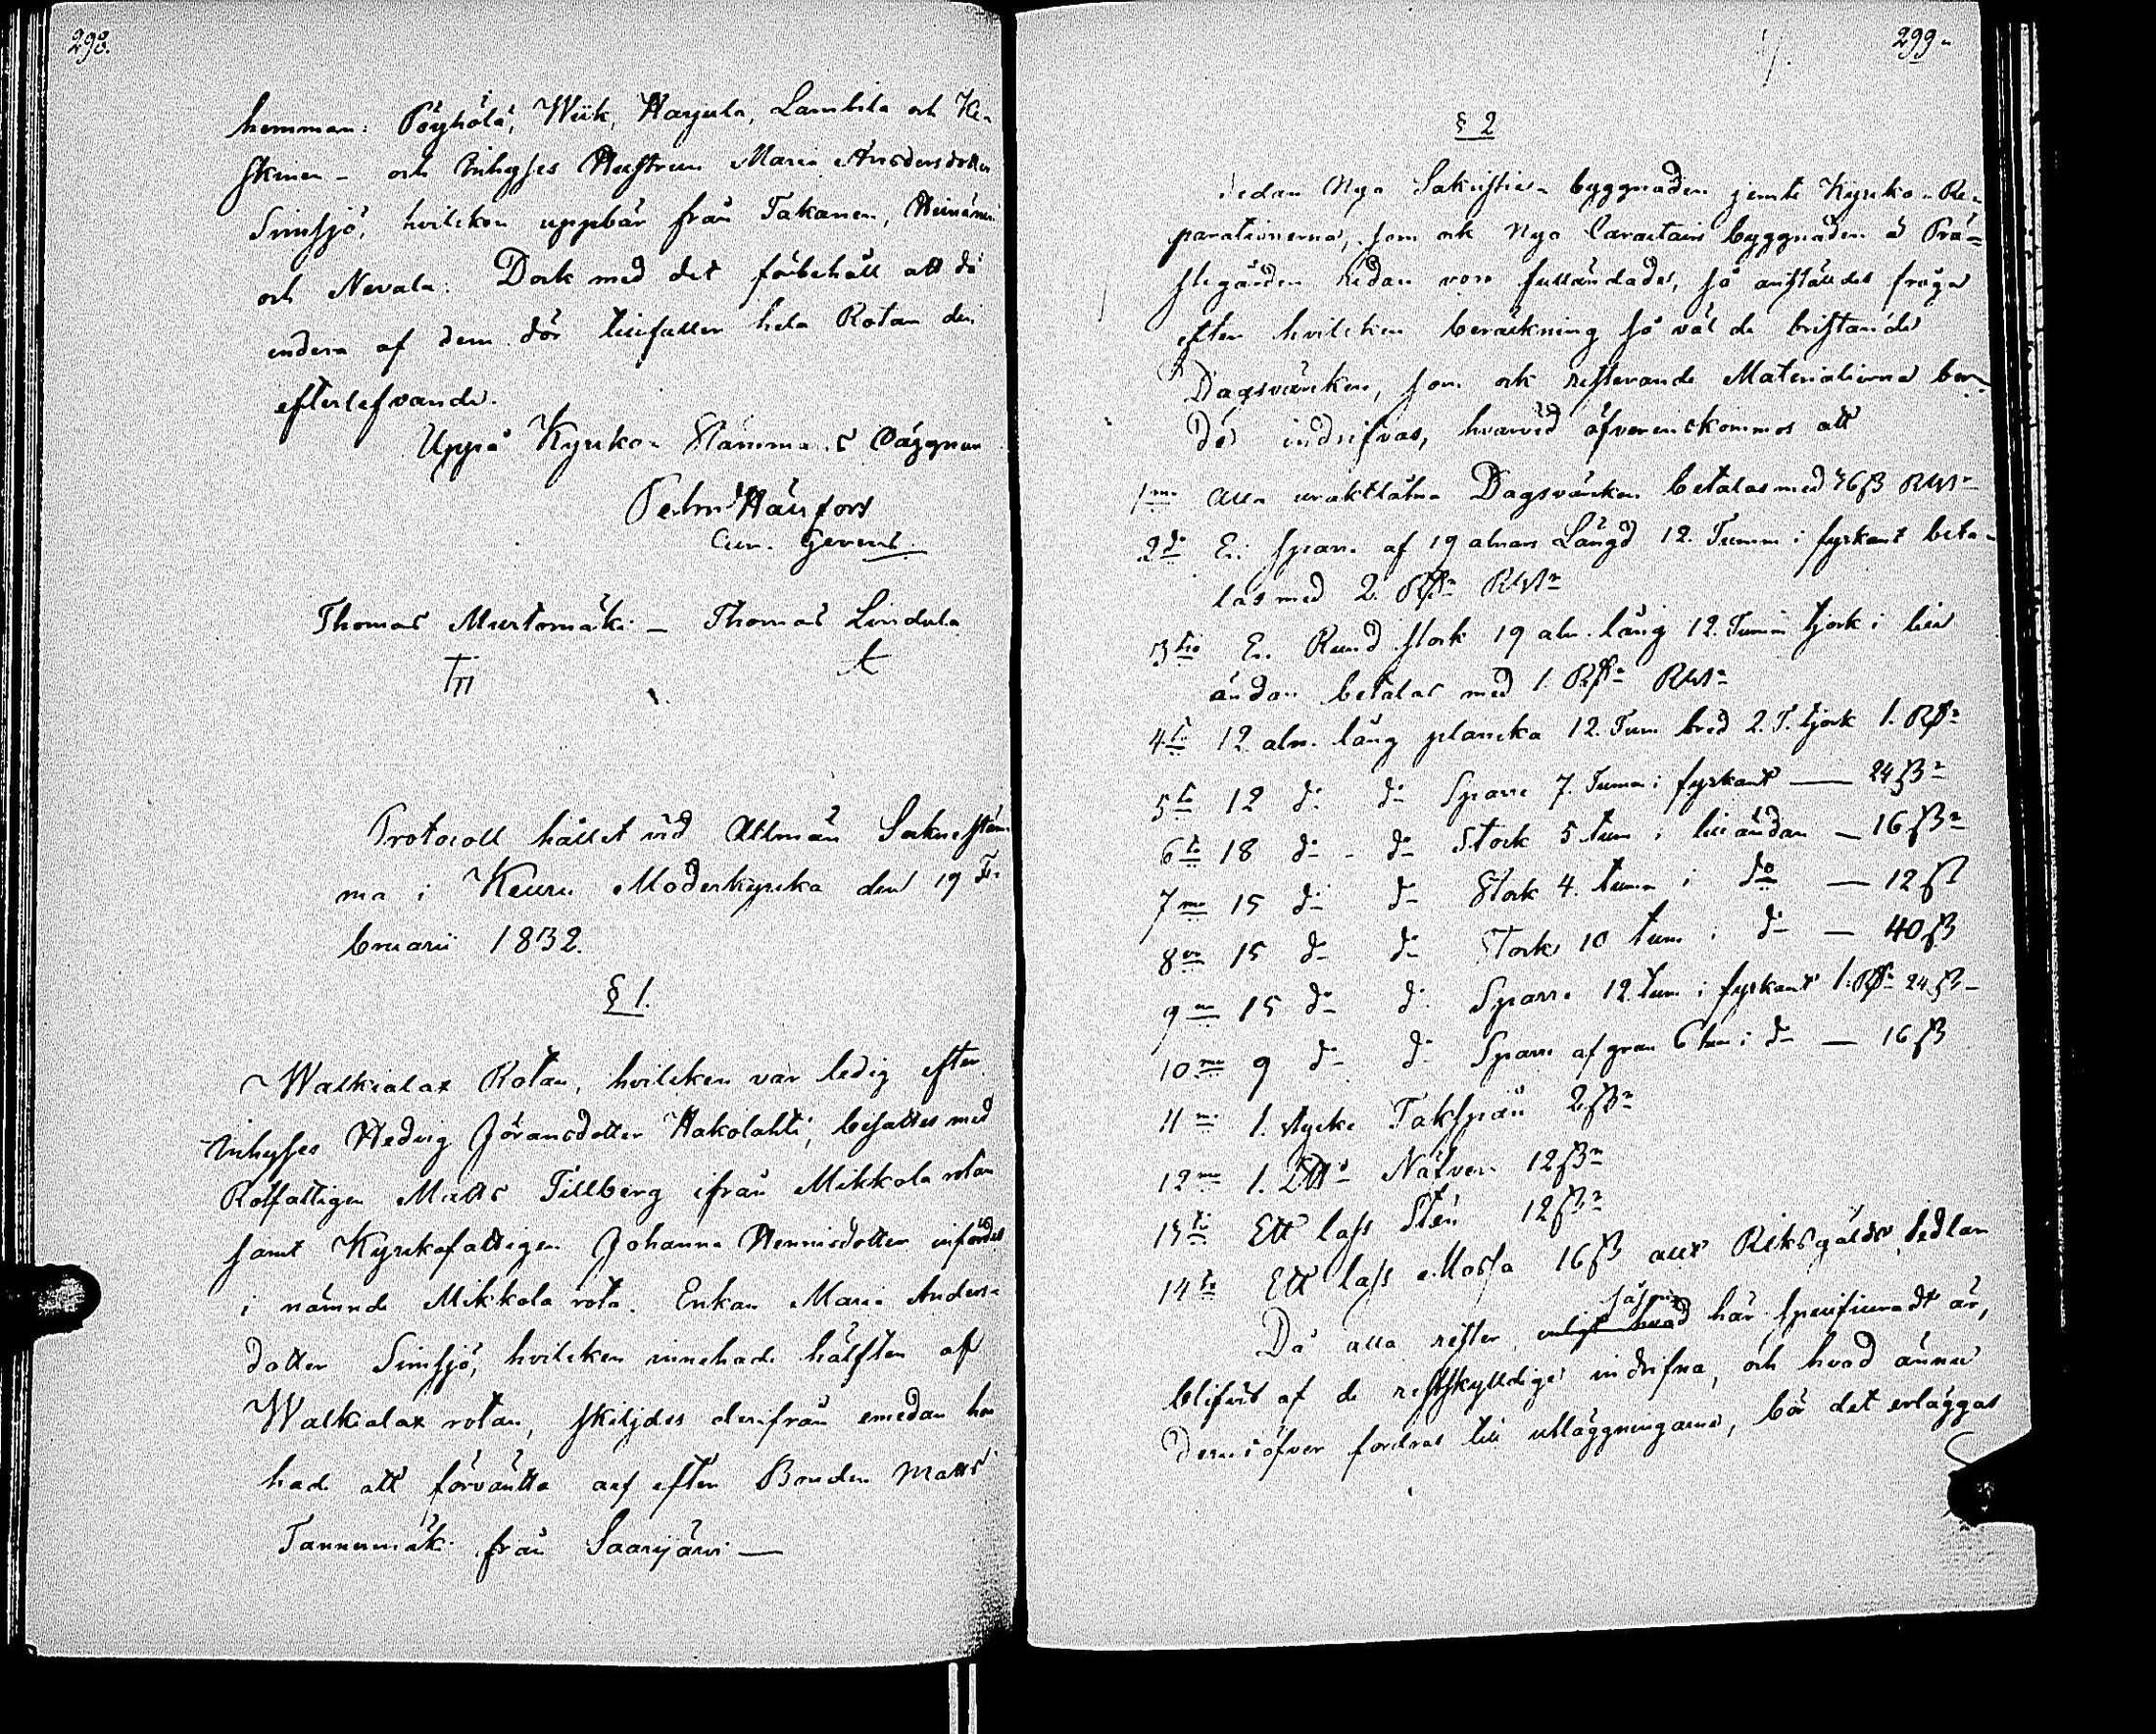 298.
hemman: Pöyhölä, Wiik, Harjula, Lambila och Ke-
skinen – och Inhyses Hustrun Maria Andersdotter
Sinisjö, hvilcken uppbär från Takanen, Heinänen
och Nevala. Dock med det förbehåll att då
endera af dem dör tillfaller hela Rotan den
efterlefvande.
Uppå Kyrko-Stämmans vägnar
Pehr Hällfors
Cur. Gerens.
Thomas Murtomäki – Thomas Lindula
Protocoll hållet vid Allmän Sockneståm-
ma i Keuru Moderkyrka den 19 Fe-
bruarii 1832.
§ 1.
Walkialax Rotan, hvilcken var ledig efter
Inhyses Hedvig Jöransdotter Hakolahti, besattes med
Rotfattigen Matts Tillberg ifrån Mikkola rotan
samt Kyrkofattigen Johanna Hennisdotter infördes
i nämnde Mikkola rota. Enkan Maria Anders-
dotter Sinisjö, hvilcken innehade hälften af
Walkialax rotan, skiljdes derifrån emedan hon
hade att förväntta arf efter Bonden Matts
Tannermäki från Saarijärvi —
299.
§ 2
Sedan Nya Sakristie-byggnaden jemte Kyrko-Re-
parationerna, som ock Nya Caractairs byggnaden å Prä-
stegården redan voro fulländade, så anställdes fråga
efter hvilcken beräkning så väl de bristande
Dagsvärken, som ock resterande Materialierna bor-
de indrifvas, hvarvid öfverenskommos att
1mo Alla uraktlåtna Dagsvärken betalas med 36 ß RGs
2do En sparre af 19 alnars Längd 12. Tumm i fyrkant beta-
las med 2. Rdr RGs
3tio En Rund stock 19 aln. lång 12. Tumm tjock i lill
ändan betalas med 1. Rdr RGs
4to 12 aln. lång plancka 12. Tum bred 2. T. tjock 1. Rdr
5to 12 do do Sparre 7. Tumm i fyrkant — 24 ß
6to 18 do - do Stock 5 tum i lilländan — 16 ß
7mo 15 do do Stock 4. tumm i do — 12 ß
8vo 15 do do Stock 10 tum i do — 40 ß
9no 15 do do Sparre 12 tum i fyrkant 1. Rdr 24 ß
10mo 9 do do Sparre af gran 6 tum i do — 16 ß
11mo 1. stycke Takspån 2 ß
12mo 1. Näfver 12 ß
13tio Ett lass Sten 12 ß
14to Ett lass Mossa 16 ß allt Riksgälds Sedlar
Då alla rester enligt hvad här specificeradt är,
blifvit af de restskylldige indrifna, och hvad ännu
derutöfver fordras till utläggningarne, bör det erläggas